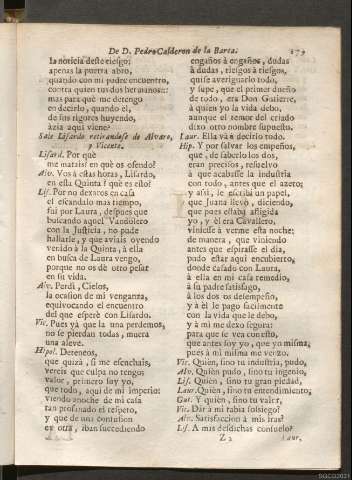 De D. Pedro Calderon de la Barca. 179
la noticia deste riesgo;
apenas la puerta abro,
quando con mi padre encuentro,
contra quien tus dos hermanos:
mas para què me detengo
en decirlo, quando èl,
de sus rigores huyendo,
àzia aqui viene?
Sale Lisardo retirandose de Alvaro,
y Vicente.
Lisard. Por què
me matais? en què os ofendo?
Alv. Vos à estas horas, Lisardo,
en esta Quinta? què es esto?
Lis. Por no dexaros en casa
el escandalo mas tiempo,
fui por Laura, despues que
buscando aquel Vandolero
con la Justicia, no pude
hallarle, y que aviais oyendo
venido à la Quinta; à ella
en busca de Laura vengo,
porque no os dè otro pesar
en su vida.
Alv. Perdì, Cielos,
la ocasion de mi venganza,
equivocando el encuentro
del que esperè con Lisardo.
Vic. Pues yà que la una perdemos,
no se pierdan todas, muera
una aleve.
Hipol. Deteneos,
que quizà, si me escuchais,
vereis que culpa no tengos
valor, primero soy yo,
que todo, aqui de mi imperio:
viendo anoche de mi casa
tan profanado el respeto,
y que de una confusion
en otra, iban sucediendo
engaños à engaños, dudas
à dudas, riesgos à riesgos,
quise averiguarlo todo,
y supe, que el primer dueño
de todo, era Don Gutierre,
à quien yo la vida debo,
aunque el temor del criado
dixo otro nombre supuesto.
Laur. Ella và à decirlo todo.
Hip. Y por salvar los empeños,
que, de saberlo los dos,
eran precisos, resuelvo
à que acabasse la industria
con todo, antes que el azero;
y assi, le escribì un papel,
que Juana llevò, diciendo,
que pues estaba afligida
yo, y èl era Cavallero,
viniesse à verme esta noche;
de manera, que viniendo
antes que espirasse el dia,
pudo estar aqui encubierto,
donde casado con Laura,
à ella en mi casa remedio,
à su padre satisfago,
à los dos os desempeño,
y à èl le pago facilmente
con la vida que le debo,
y à mi me dexo segura:
para que se vea con esto,
que antes soy yo, que yo misma,
pues à mi misma me venzo.
Vic. Quien, sino tu industria, pudo,
Alv. Quien pudo, sino tu ingenio,
Lis. Quien, sino tu gran piedad,
Laur. Quien, sino tu entendimiento,
Gut. Y quien, sino tu valor,
Vic. Dàr à mi rabia sossiego?
Alv. Satisfaccion à mis iras?
Lis. A mis desdichas consuelo?
Z 2 Laur.
BGCO2021